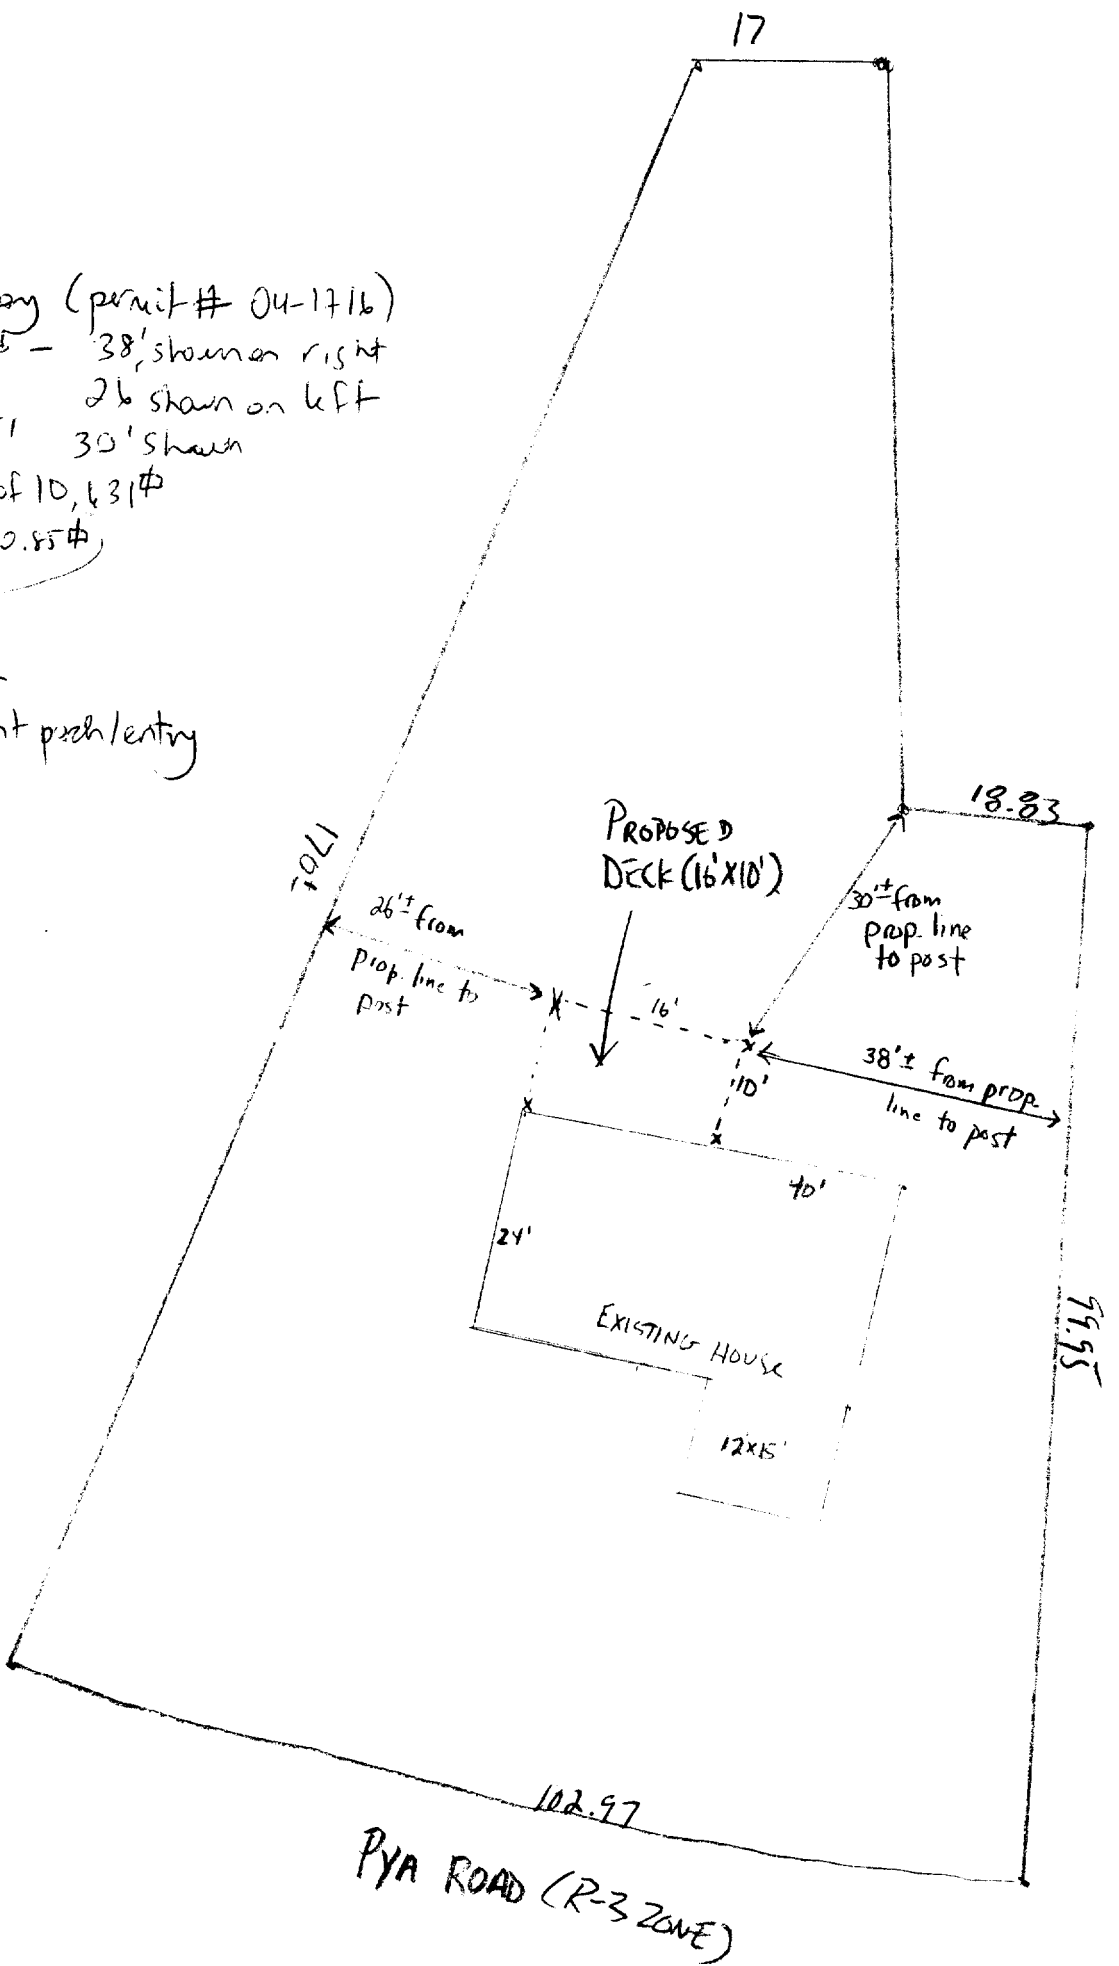 17
(permit # 04-1716)
- 38' shown on right
26 shown on left
30' shown
of 10,631⌷
0.85⌷
porch/entry
170±
PROPOSED
DECK (16'X10')
18.83
26'± from
prop. line to
post
16'
10'
30'± from
prop. line
to post
38'± from prop.
line to post
40'
24'
EXISTING HOUSE
12x15'
99.95
102.97
PYA ROAD (R-3 ZONE)